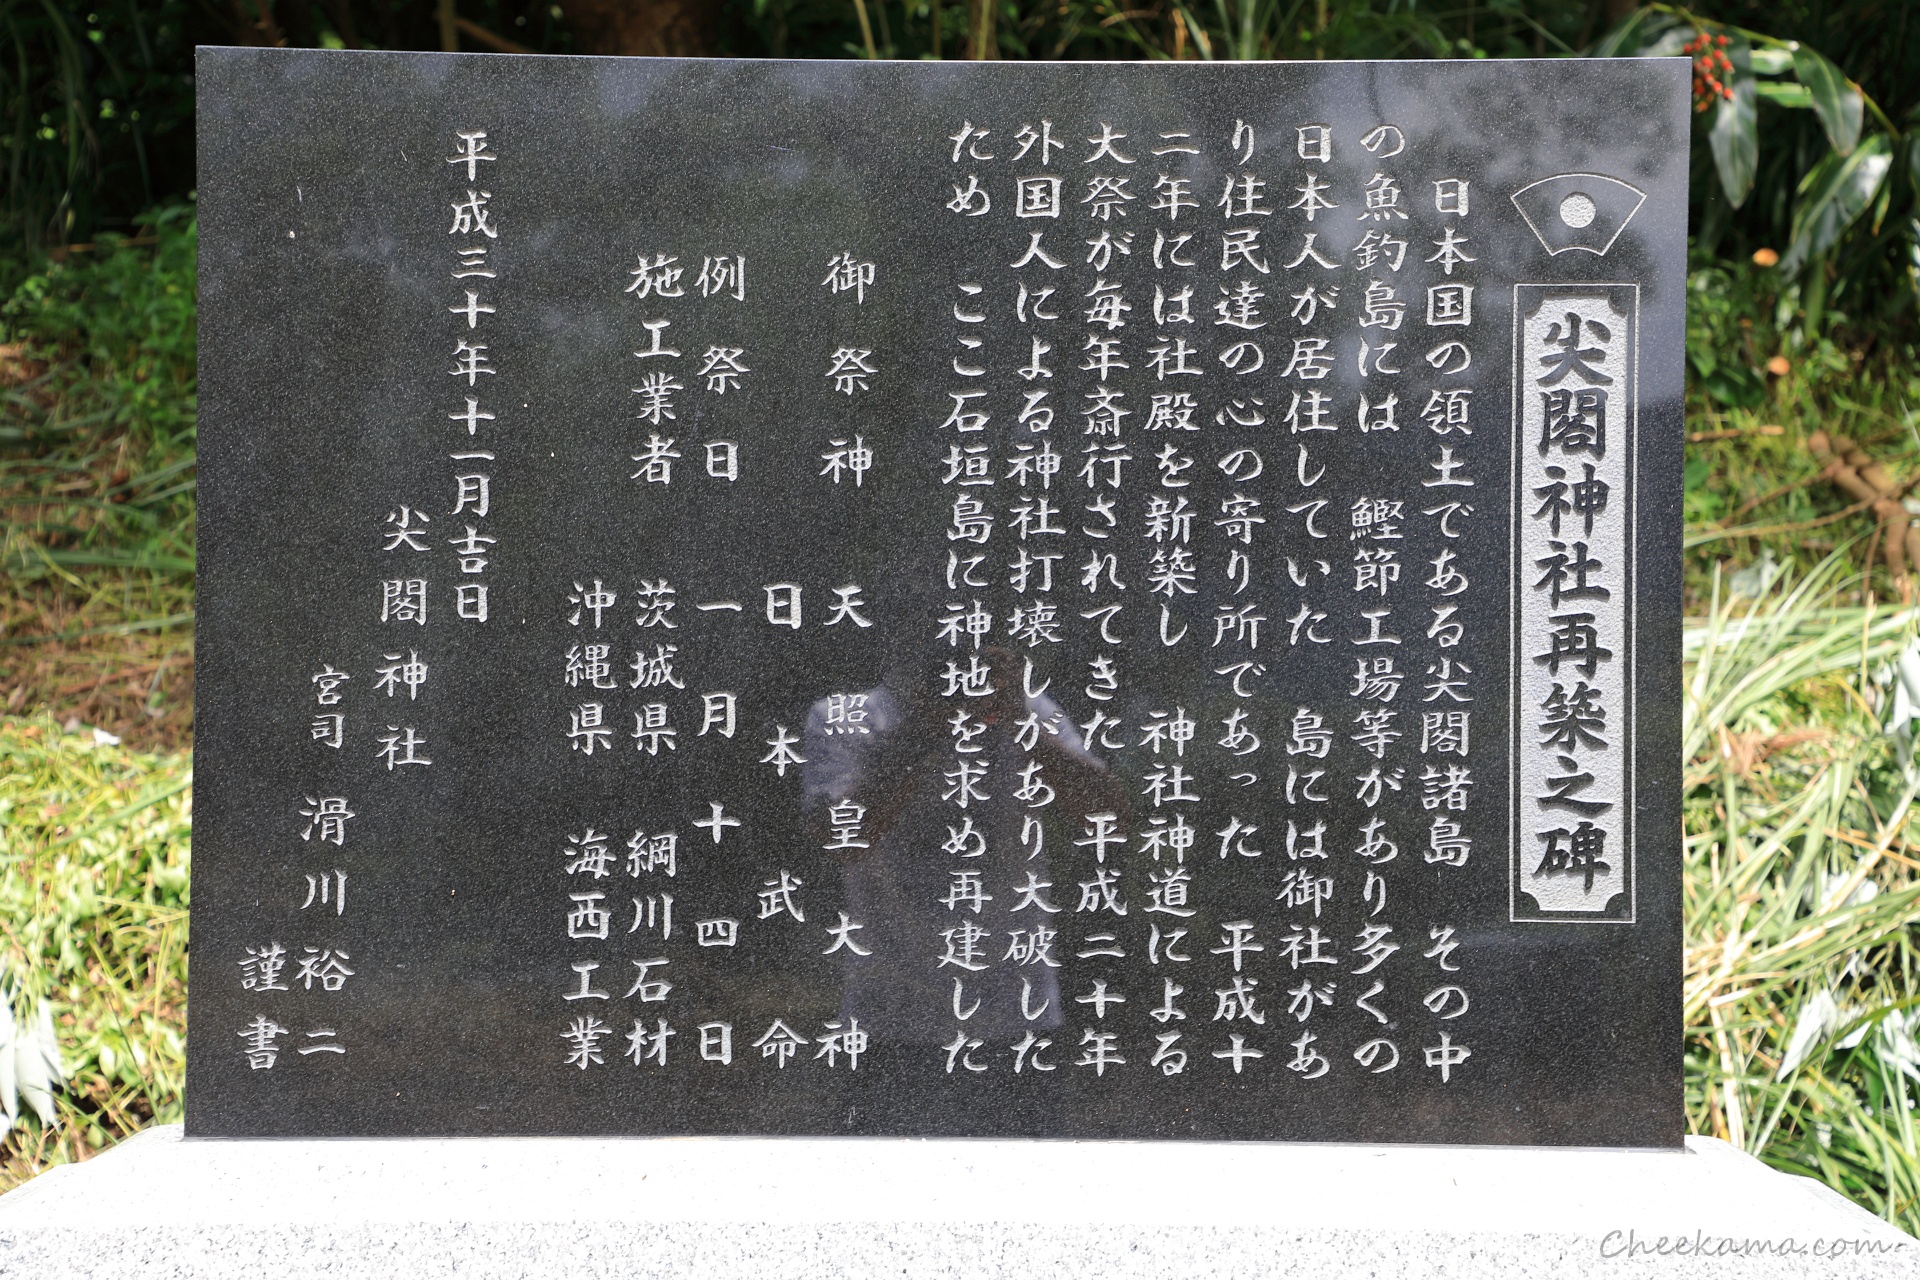 尖閣神社再築之碑
日本国の領土である尖閣諸島　その中
の魚釣島には　鰹節工場等があり多くの
日本人が居住していた　島には御社があ
り住民達の心の寄り所であった　平成十
二年には社殿を新築し　神社神道による
大祭が毎年斎行されてきた　平成二十年
外国人による神社打壊しがあり大破した
ため　ここ石垣島に神地を求め再建した
御祭神　天照皇大神
日本武命
例祭日　一月十四日
施工業者　茨城県　綱川石材
沖縄県　海西工業
平成三十年十一月吉日
尖閣神社
宮司　滑川裕二
謹書
Cheekama.com